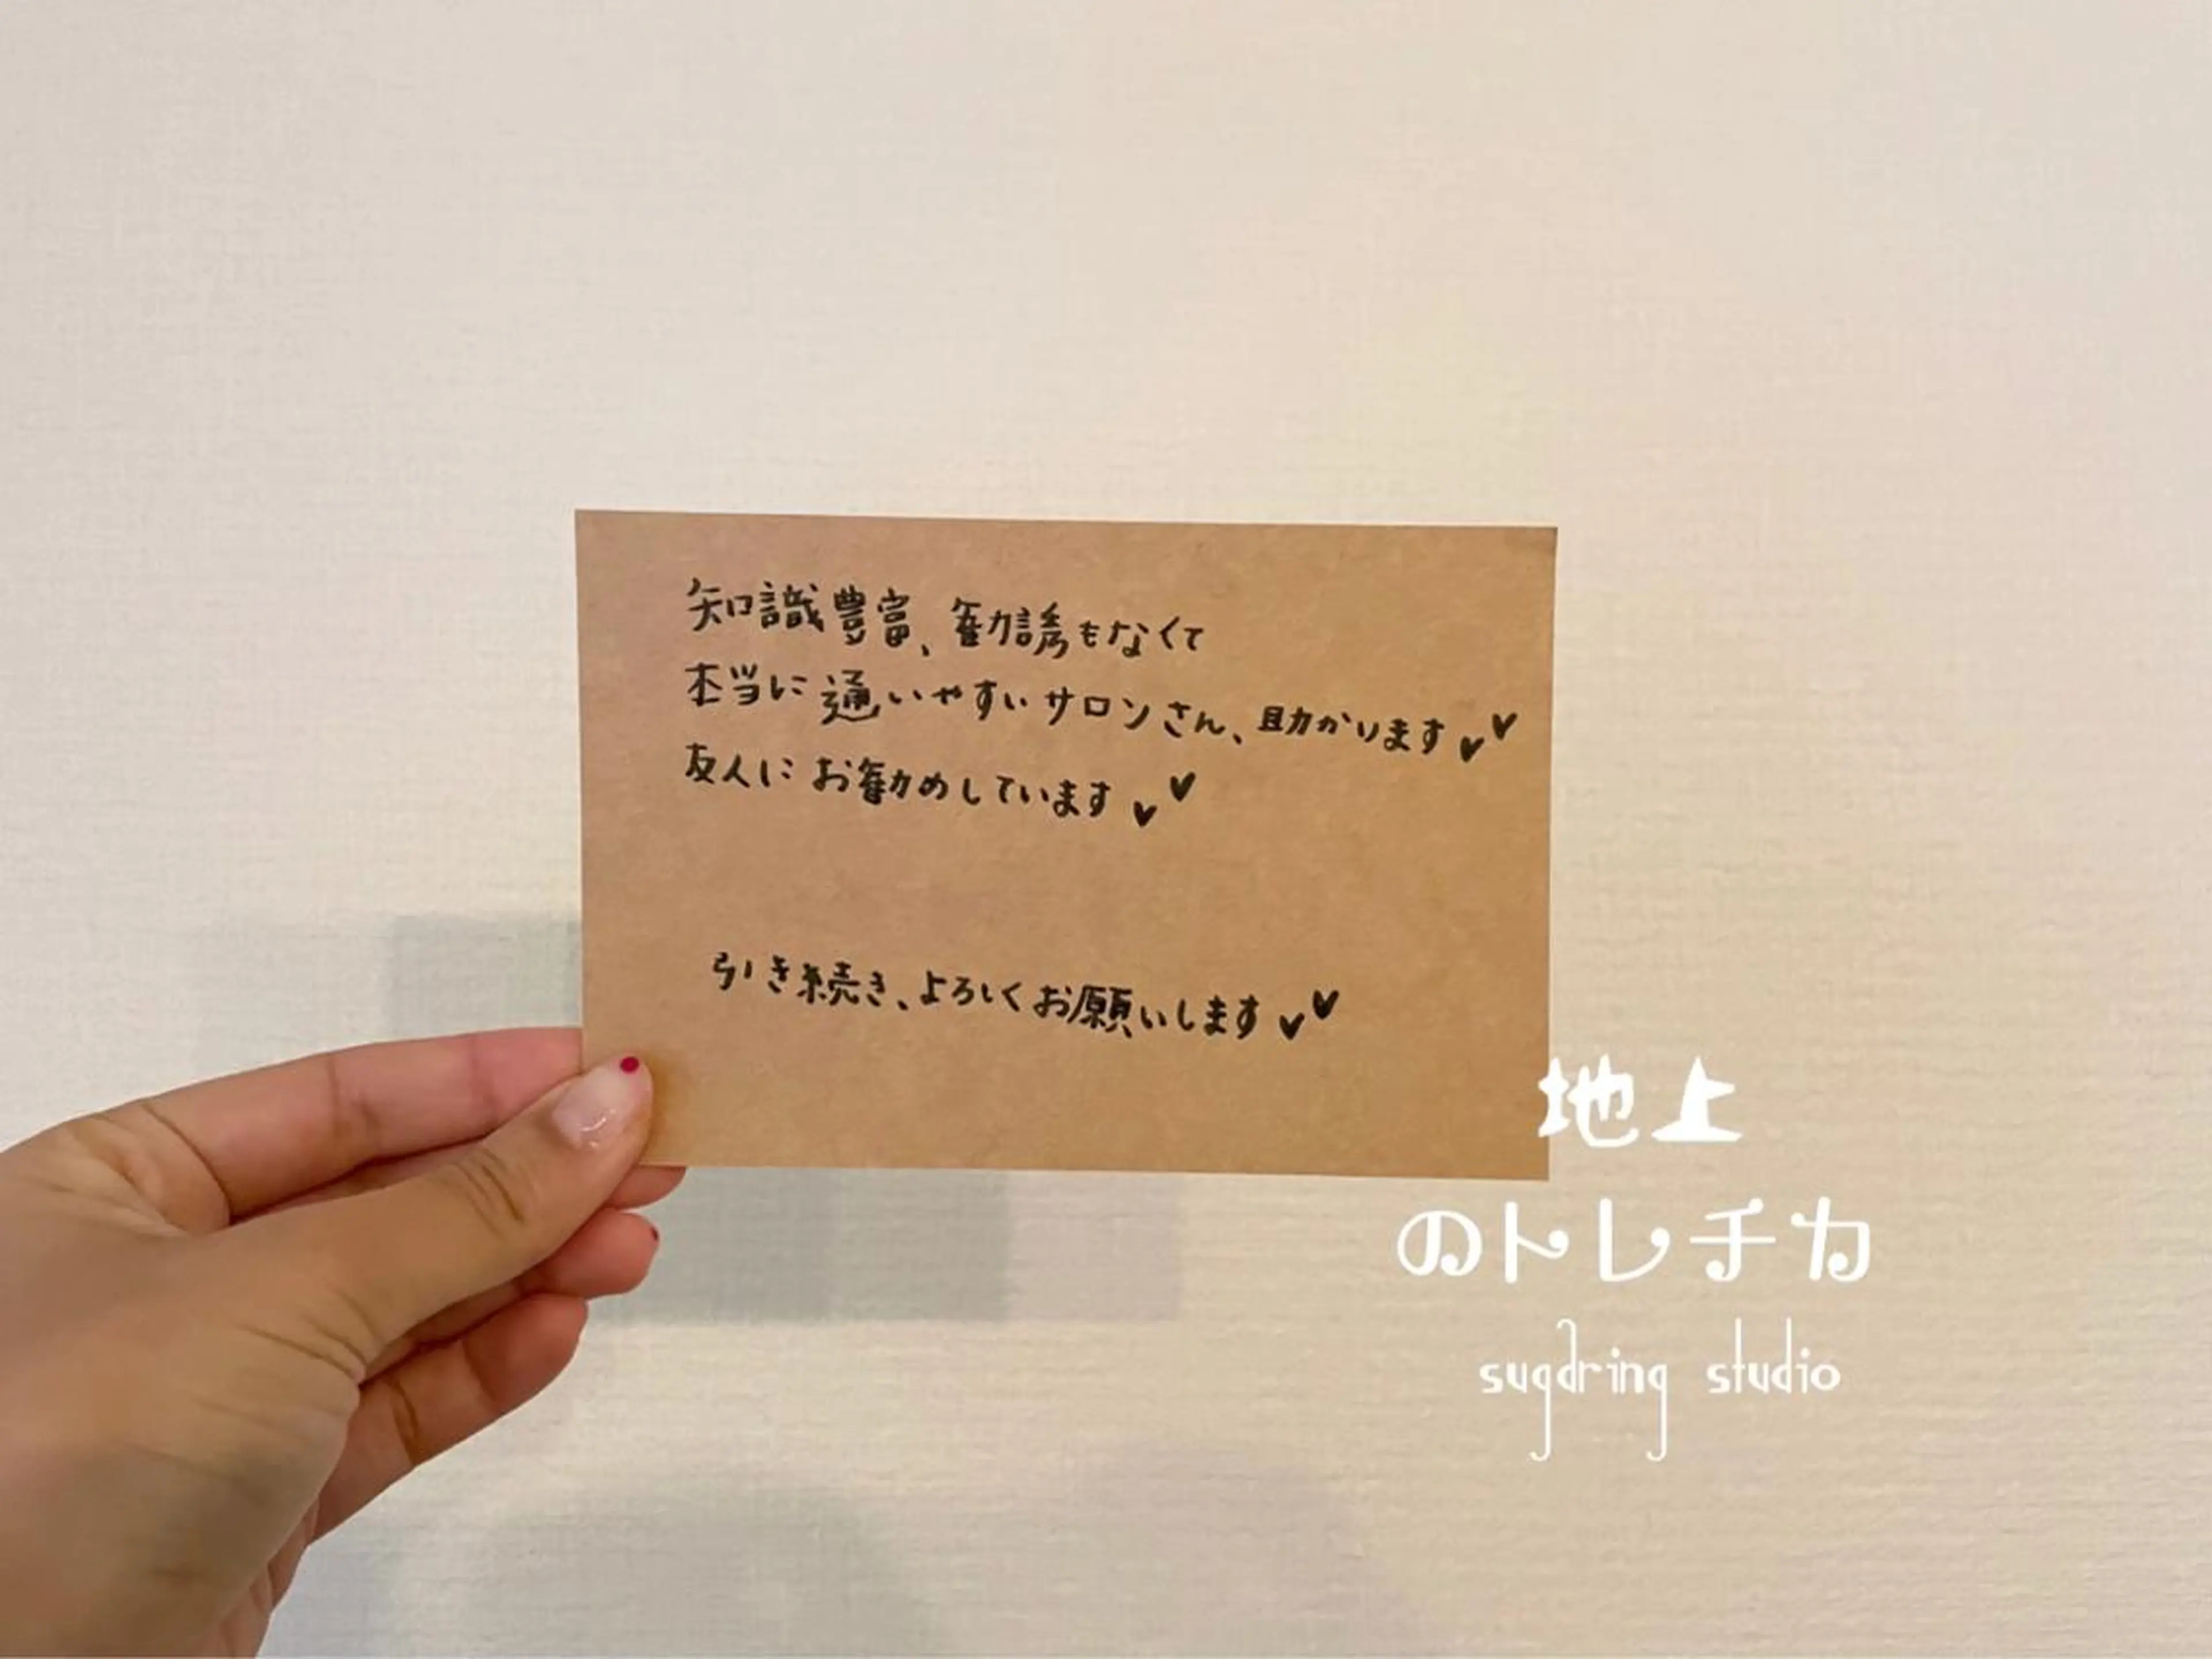 知識豊富、勧誘もなくて
本当に通いやすいサロンさん、助かります♥♥
友人にお勧めしています♥♥
引き続き、よろしくお願いします♥♥
地上
のトレチカ
sugaring studio